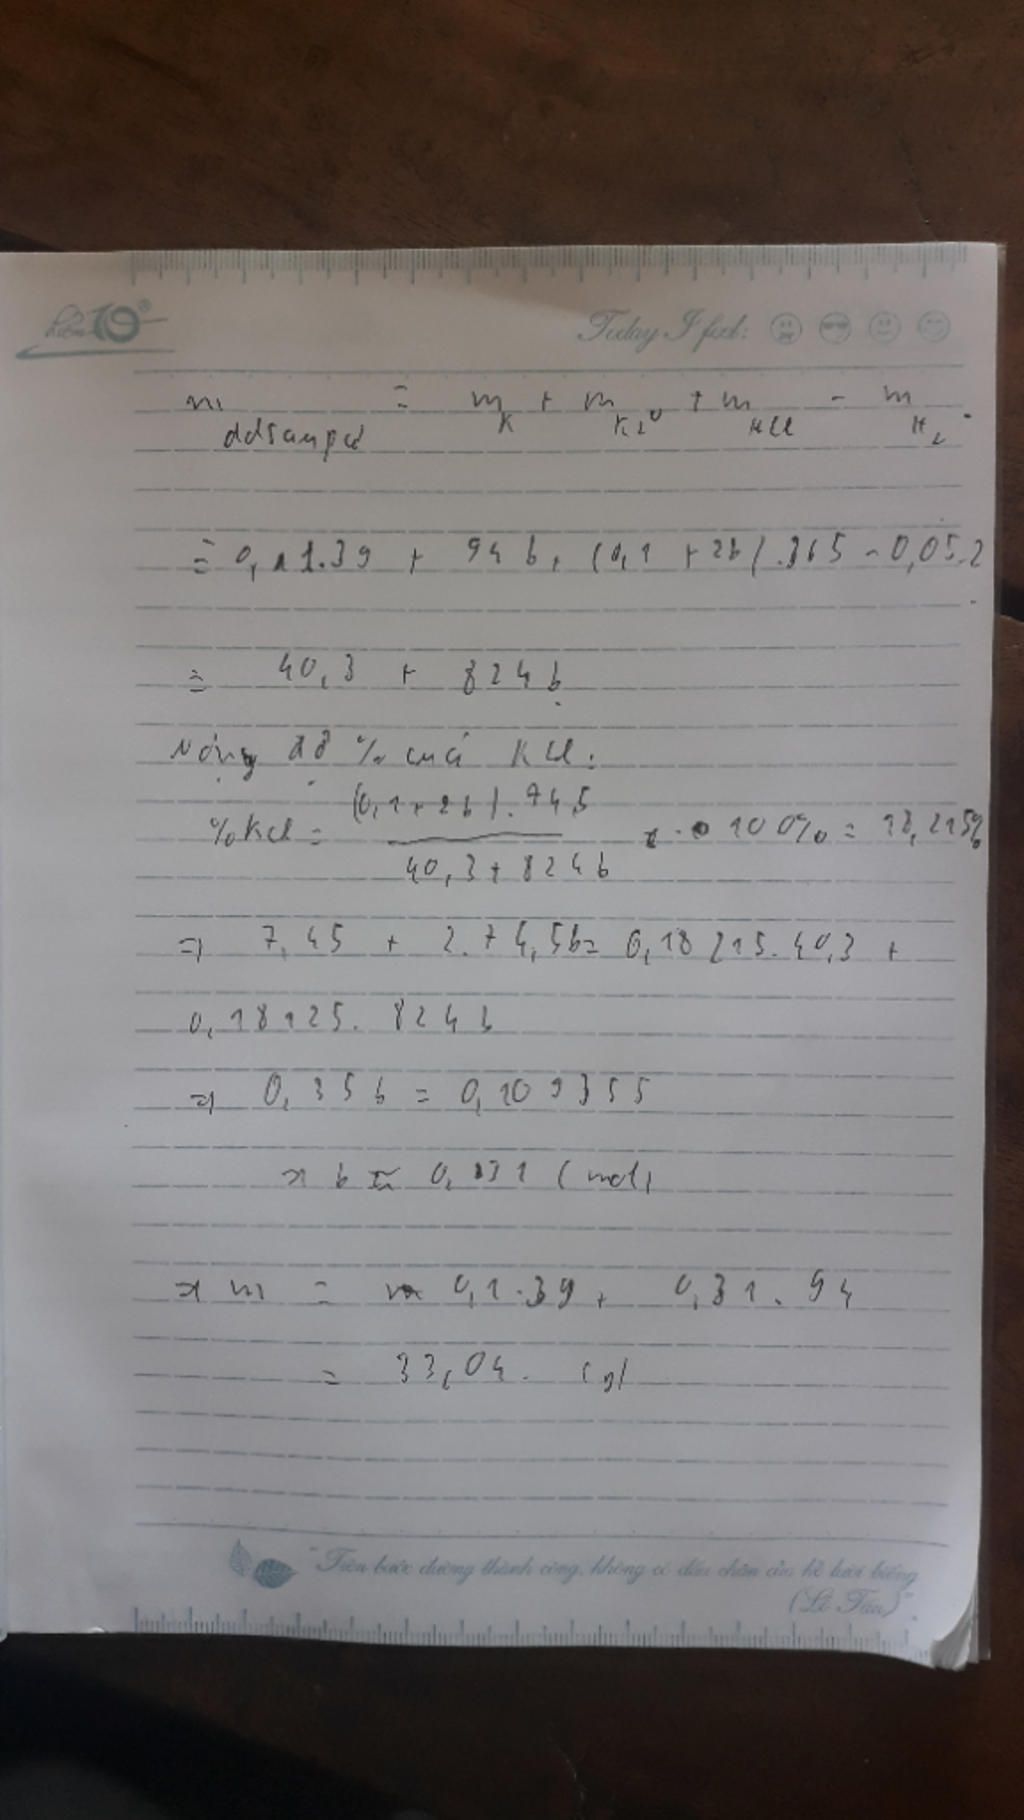 Today I feel:
m ddsaupứ = m K + m K2O + m HCl - m H2.
= 0,1.39 + 94b + (0,1 + 2b).365 - 0,05.2
= 40,3 + 824b
Nồng độ % của KCl:
%KCl = (0,1 + 2b).74,5 / 40,3 + 824b . 100% = 18,215%
=> 7,45 + 2.74,5b = 0,18215.40,3 +
0,18125.824b
=> 0,35b = 0,109355
=> b = 0,31 (mol)
=> m = 0,1.39 + 0,31.94
= 33,04. (g)
"Trên bước đường thành công, không có dấu chân của kẻ lười biếng
(Lỗ Tấn)".